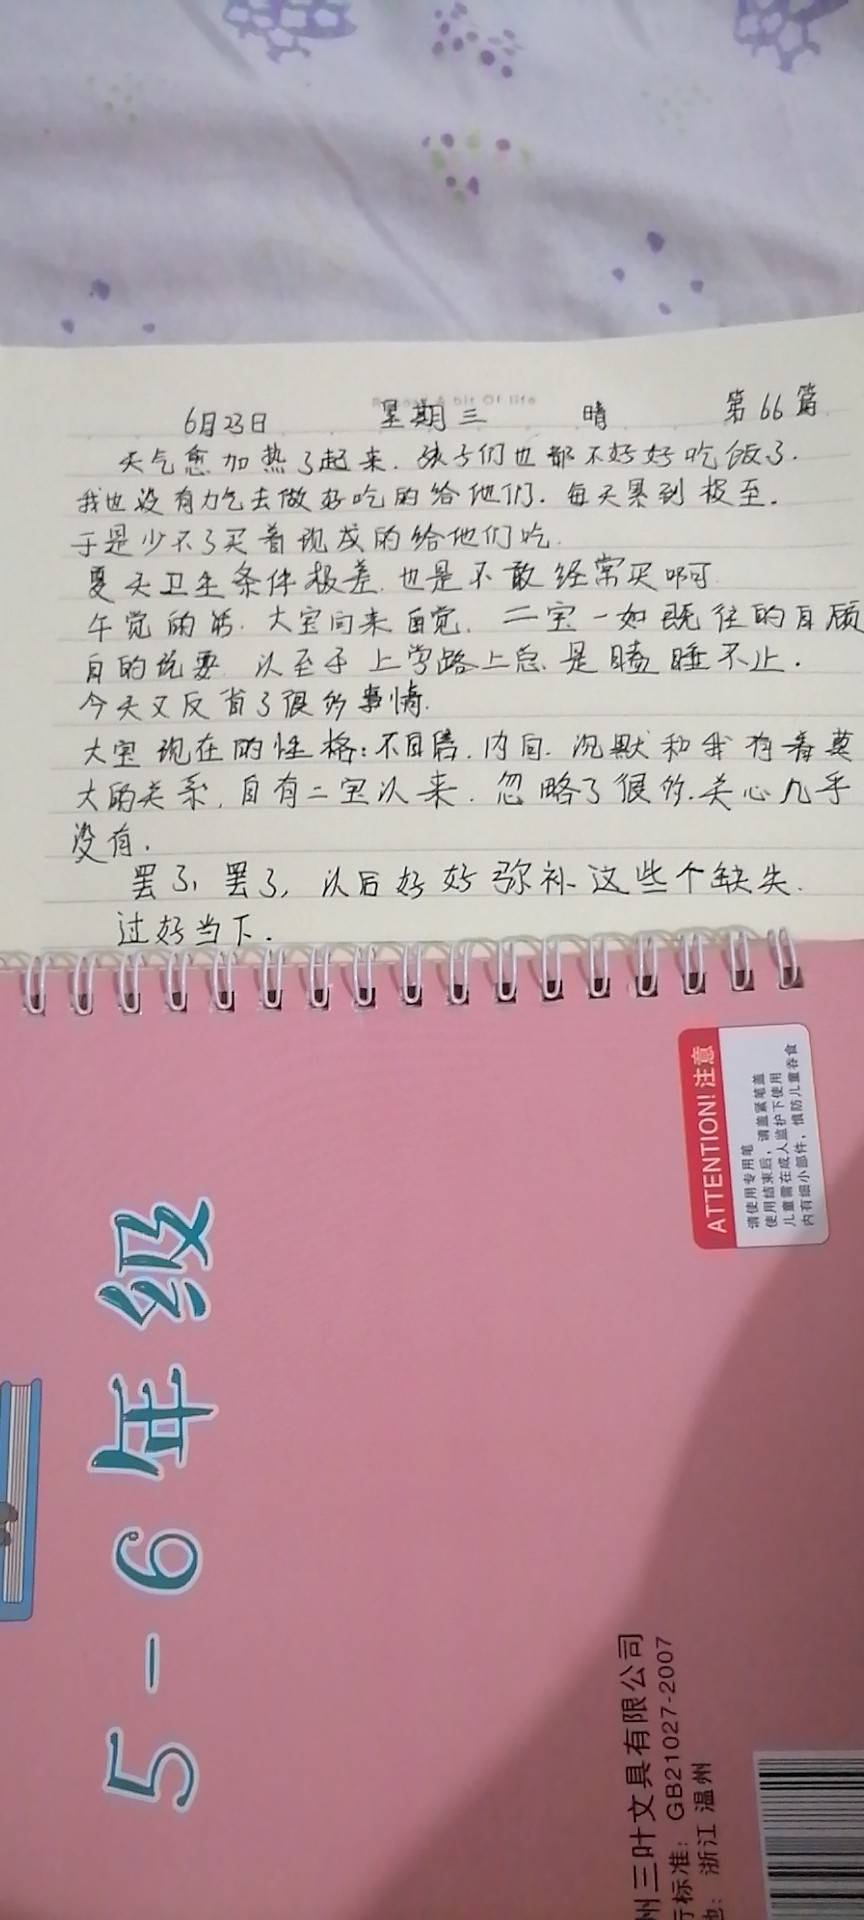 6月23日 星期三 晴 第66篇
天气愈加热了起来.孩子们也都不好好吃饭了.
我也没有力气去做好吃的给他们.每天累到极至.
于是少不了买着现成的给他们吃.
夏天卫生条件极差.也是不敢经常买啊
午觉的话.大宝向来自觉.二宝一如既往的自顾
自的说耍.以至于上学路上总是瞌睡不止.
今天又反省了很多事情.
大宝现在的性格:不自信.内向.沉默和我有着莫
大的关系.自有二宝以来.忽略了很多.关心几乎
没有.
罢了,罢了,以后好好弥补这些个缺失.
过好当下.
ATTENTION! 注意
请使用专用笔
使用结束后,请盖紧笔盖
儿童需在成人监护下使用
内有细小部件,慎防儿童吞食
5-6年级
州三叶文具有限公司
行标准: GB21027-2007
地: 浙江 温州